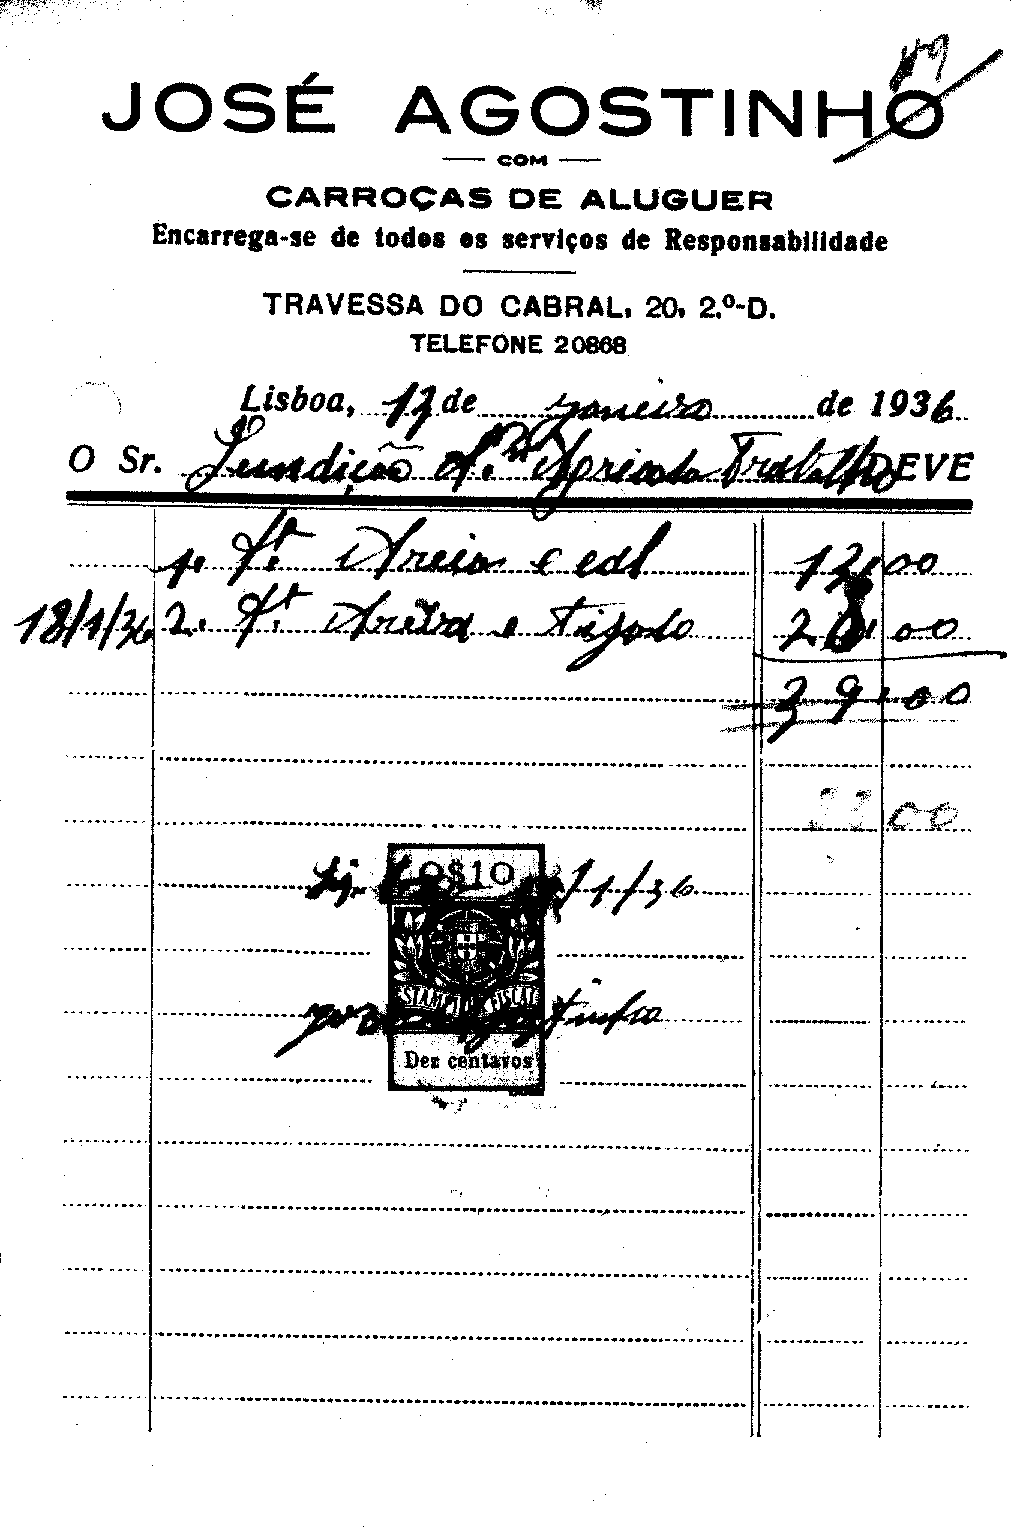 JOSÉ AGOSTINHO
COM
CARROÇAS DE ALUGUER
Encarrega-se de todos os serviços de Responsabilidade
TRAVESSA DO CABRAL, 20, 2.º-D.
TELEFONE 20868
Lisboa, 17 de Janeiro de 1936
O Sr. Fundição DEVE
1. Ft. Areia e cal 12,00
18/1/36 2. Ft. Areia e Tijolo 2 ,00
39,00
0$10 /1/36
ESTAMPILHA FISCAL
José Agostinho
Dez centavos